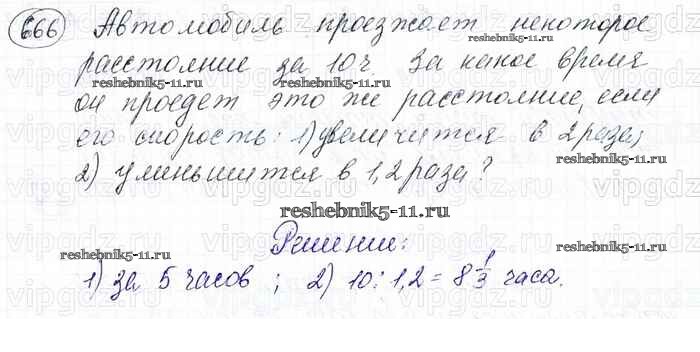 666 Автомобиль проезжает некоторое
расстояние за 10ч. За какое время
reshebnik5-11.ru reshebnik5-11.ru
он проедет это же расстояние, если
его скорость: 1) увеличится в 2 раза;
2) уменьшится в 1,2 раза?
reshebnik5-11.ru
Решение:
reshebnik5-11.ru
1) за 5 часов ; 2) 10 : 1,2 = 8 1/3 часа.
reshebnik5-11.ru